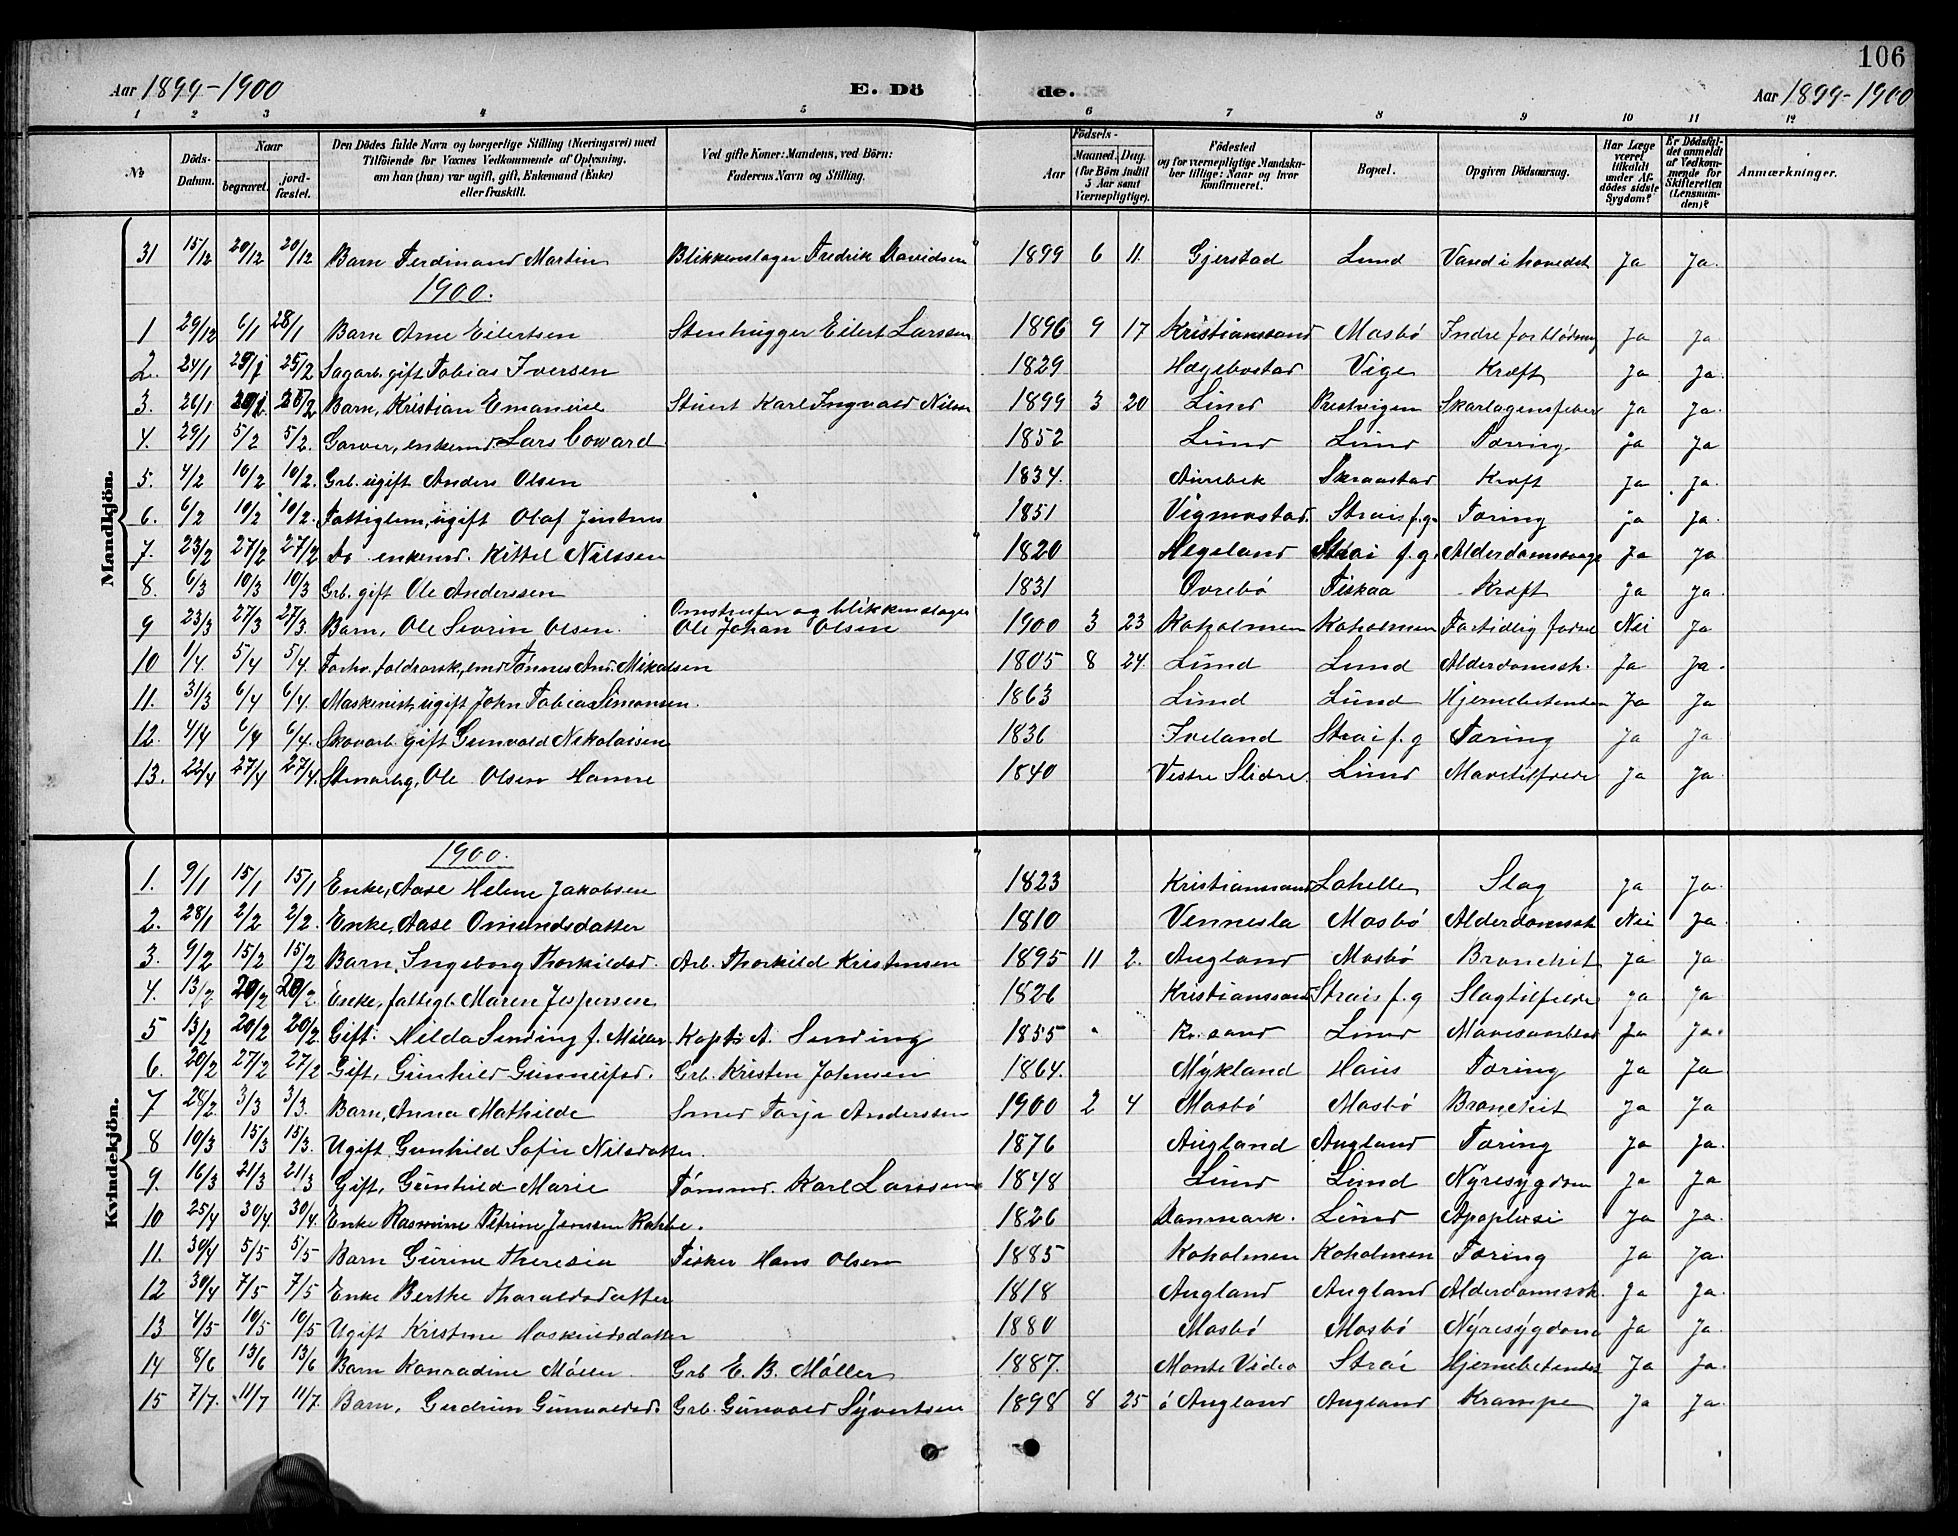 106
Aar 1899-1900 E. Dö de. Aar 1899-1900
1 2 3 4 5 6 7 8 9 10 11 12
№ Döds-Datum. Naar begravet. jord-fæstet. Den Dödes fulde Navn og borgerlige Stilling (Næringsvei) med Tilföiende for Voxnes Vedkommende af Oplysning, om han (hun) var ugift, gift, Enkemand (Enke) eller fraskilt. Ved gifte Koner: Mandens, ved Börn: Faderens Navn og Stilling. Födsels- Aar Maaned. Dag. (for Börn indtil 5 Aar samt Værnepligtige). Födested og for værnepligtige Mandska-ber tillige: Naar og hvor konfirmeret. Bopæl. Opgiven Dödsaarsag. Har Læge været tilkaldt under Af-dödes sidste Sygdom? Er Dödsfal-det anmeldt af Vedkom-mende for Skifteretten (Lensman-den)? Anmærkninger.
Mandkjön.
31 15/12 20/12 20/12 Barn Ferdinand Martin Blikkenslager Fredrik Davidsen 1899 6 11. Gjerstad Lund Vand i hovedet Ja Ja.
1900.
1 29/12 6/1 28/1 Barn Arne Eilertsen Stenhugger Eilert Larssen 1896 9 17 Kristianssand Mosbö Indre forblödning Ja Ja.
2. 24/1 29/1 25/2 Sagarb. gift Tobias Iversen 1829 Hægebostad Vige Kræft Ja Ja.
3. 26/1 25/2 Barn, Kristian Emanuel Stuert Karl Ingvald Nilsen 1899 3 20 Lund Prestvigen Skarlagensfeber Ja Ja.
4. 29/1 5/2 5/2. Garver, enkemd Lars Coward 1852 Lund Lund Tæring. Ja Ja
5. 4/2 10/2 10/2. Grb. ugift Anders Olsen 1834. Aurebek Skraastad Kræft Ja Ja.
6. 6/2 10/2 10/2. Fattiglem, ugift Olaf Jentnes 1851 Vigmostad. Strais f.g. Tæring Ja Ja.
7. 23/2 27/2 27/2 Do enkemd. Kittel Nilssen 1820 Hegeland Strai f.g. Alderdomssvage Ja Ja
8. 6/3 10/3 10/3 Grb. gift Ole Anderssen 1831 Ovrebö Fiskaa Kræft Ja Ja.
9 23/3 27/3 27/3. Barn, Ole Severin Olsen. og blikkenslager Ole Johan Olsen 1900 3 23 Koholmen Koholmen For tidlig födsel Nei Ja
10 1/4 5/4 5/4. Forhv. toldvæsk, emd Tönnes And. Nikolsen 1805 8 24. Lund Lund Alderdomssk. Ja Ja.
11. 31/3 6/4 6/4. Maskenist ugift John Tobias Simonsen. 1863 Lund Lund Hjernebetenden Ja Ja
12. 4/4 6/4 6/4. Skovarb. gift Gunvald Nikolaisen 1836 Iveland Strai f.g Tæring Ja Ja
13. 22/4 27/4 27/4. Stenarbg, Ole Olsen Hamre 1840 Vestre Slidre. Lund Mavetilfælde Ja Ja.
Kvindekjön.
1900.
1. 9/1 15/1 15/1 Enke, Aase Helene Jakobsen 1823 Kristianssand Lahelle Slag Ja Ja.
2. 28/1 2/2 2/2. Enke, Aase Omundsdatter 1810 Vennesla Mosbö Alderdomssk Nei Ja.
3. 9/2 15/2 15/2 Barn, Ingeborg Thorkildsd. Arb. Thorkild Kristensen 1895 11 2. Augland Mosbö Bronchit Ja Ja.
4. 13/2 20/2 20/2. Enke, fattigl. Maren Jespersen 1826 Kristianssand Strais f.g Slagtilfelde Ja Ja.
5 13/2 20/2 20/2. Gift. Hilda Sending f. Möller Kapt. A. Sending 1855 Kr.sand Lund Ja Ja.
6. 20/2 27/2 27/2 Gift, Gunhild Gunneifsd. Grb. Kristen Johnsen 1864. Mykland Haus Tæring Ja Ja
7 28/2 3/3 3/3. Barn, Anna Mathilde Smed Tarje Anderssen 1900 2 4 Mosbö Mosbö Bronchit Ja Ja.
8 10/3 15/3 15/3. Ugift Gunhild Sofie Nilsdatter. 1876 Augland Augland Tæring Ja Ja.
9. 16/3 21/3 21/3 Gift, Gunhild Marie Tömmd. Karl Larssen 1848 Lund Lund Nyresygdom Ja Ja.
10 25/4 30/4 30/4. Enke Rasmine Petrine Jensen Rahbe. 1826 Danmark. Lund Apoplexi Ja Ja.
11. 30/4 5/5 5/5 Barn Gurine Theresia Fisker Hans Olsen 1885 Koholmen Koholmen Tæring Ja Ja.
12 30/4 7/5 7/5 Enke Berthe Tharaldsdatter 1818 Augland Augland Alderdomssk. Ja Ja.
13 4/5 10/5 10/5 Ugift Kristine Hoskuldsdatter 1880 Mosbö Mosbö Nyresygdom Ja Ja.
14 8/6 13/6 13/6 Barn Konradine Möller. Grb E. B. Möller 1887. Monte Video Strai Hjernebetendelse Ja Ja.
15 7/7. 11/7 11/7. Barn, Gudrun Gunvaldsd. Grb. Gunvald Syvertsen 1898 8 25 ö Augland Augland Krampe Ja Ja.